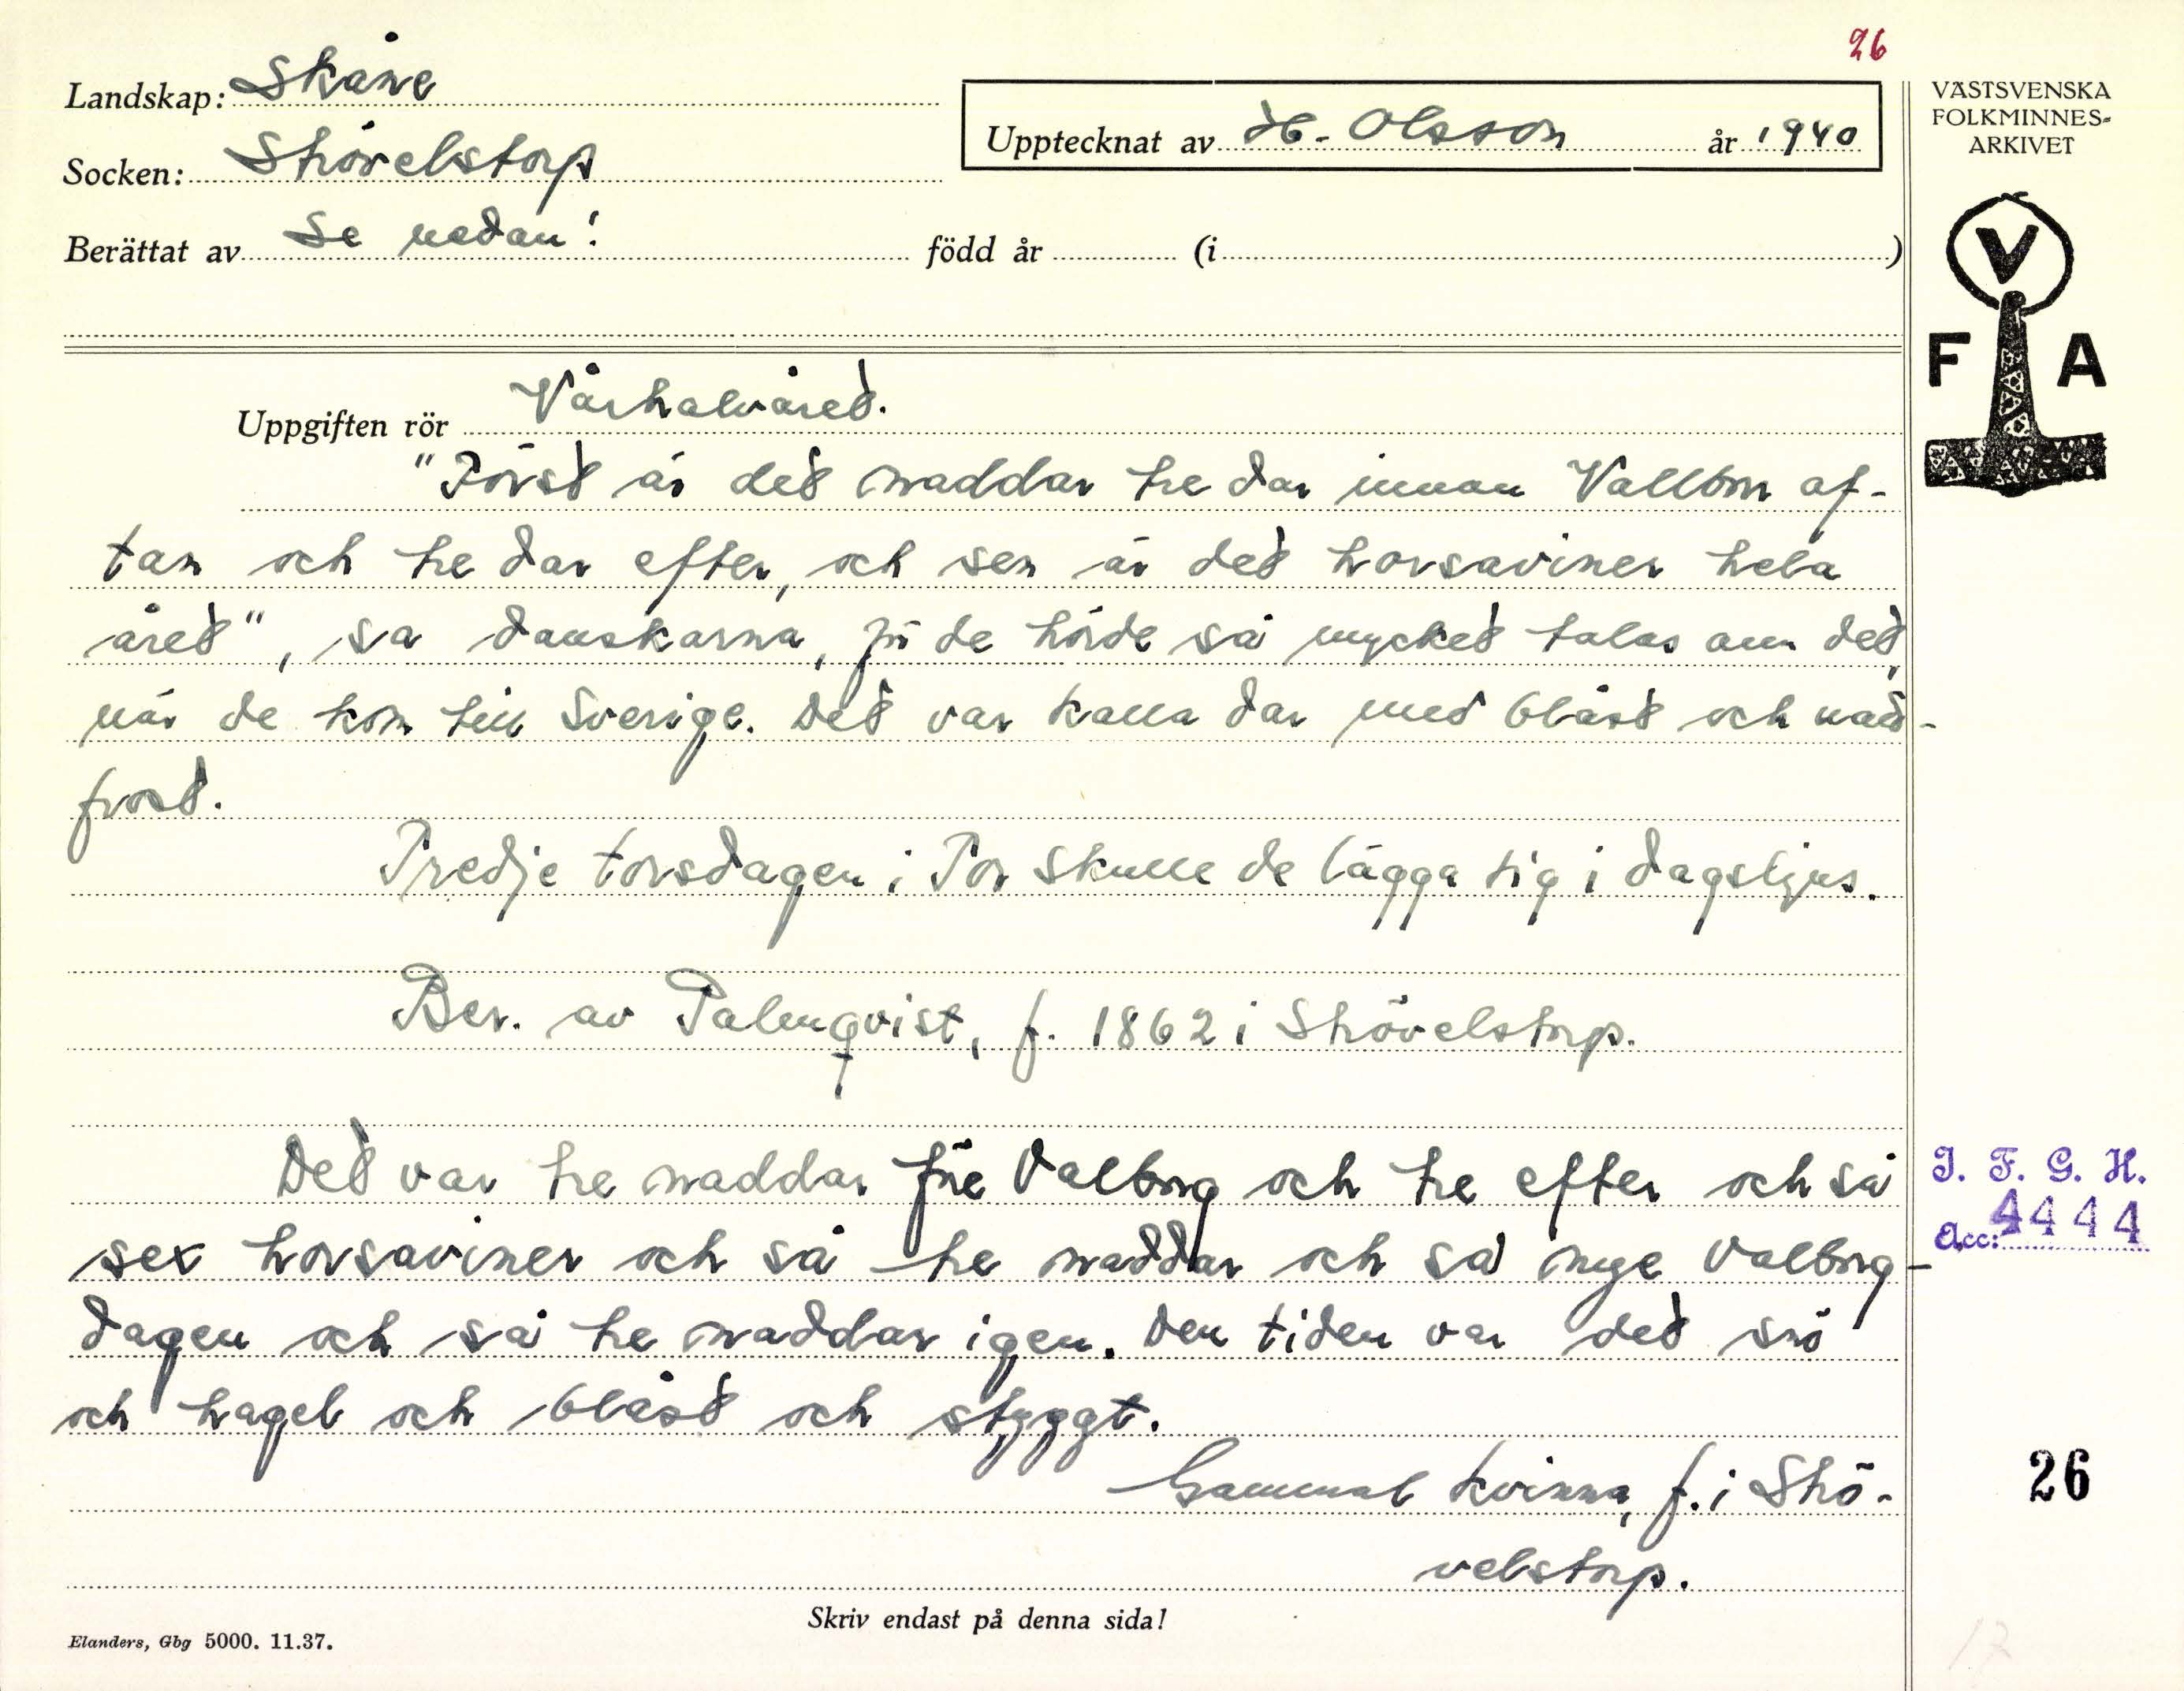 26
Landskap: Skåne
Upptecknat av H. Olsson år 1940
VÄSTSVENSKA
FOLKMINNES-
ARKIVET
Socken: Strövelstorp
Berättat av Se nedan! född år (i )
V
F A
Uppgiften rör Vårhalvåret.
"Först är det naddar tre dar innan Valbor af-
tan och tre dar efter, och sen är det horsaviner hela
året", sa danskarna, för de hörde så mycket talas om det,
när de kom till Sverige. Det var kalla dar med blåst och natt-
frost.
Tredje torsdagen i Tor skulle de lägga sig i dagsljus.
Ber. av Palmqvist, f. 1862 i Strövelstorp.
Det var tre naddar före Valborg och tre efter och så
sex horsaviner och så tre naddar och så nye Valborg-
dagen och så tre naddar igen. Den tiden var det snö
och hagel och blåst och styggt.
Gammal kvinna, f. i Strö-
velstorp.
I. F. G. H.
Acc: 4444
26
Skriv endast på denna sida!
Elanders, Gbg 5000. 11.37.
17